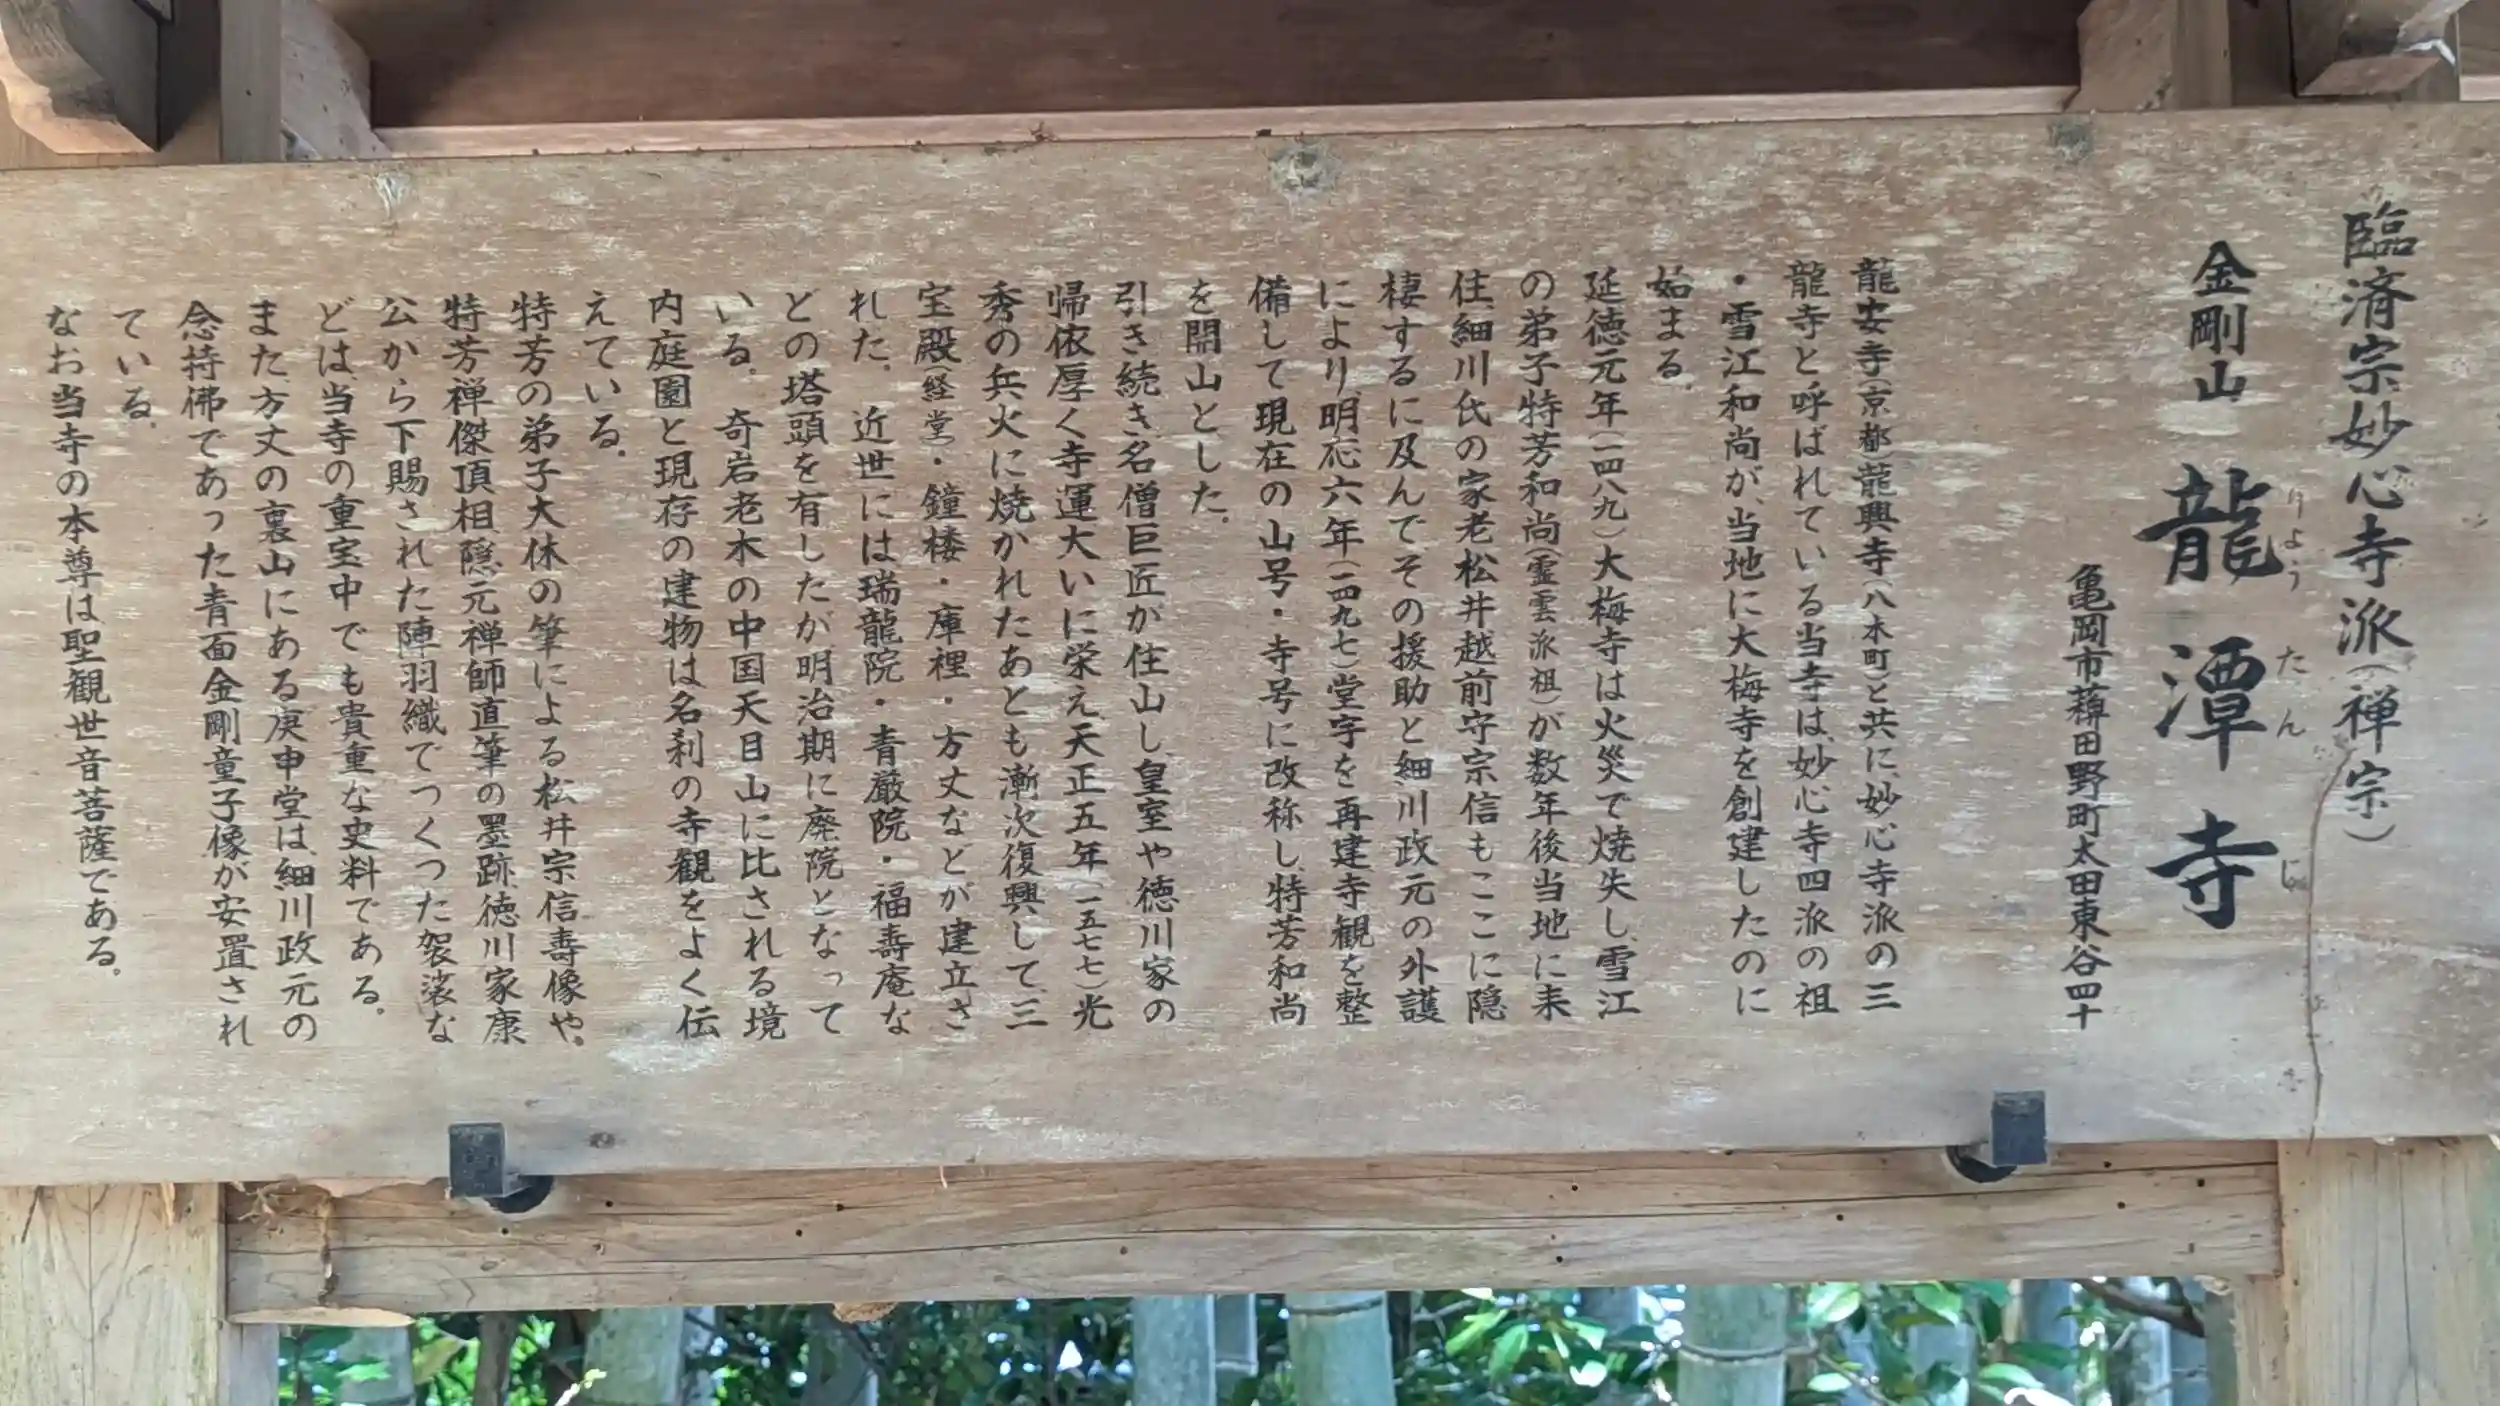 臨済宗妙心寺派(禅宗)
金剛山 龍潭寺
りょう たん じ
亀岡市薭田野町太田東谷四十
龍安寺(京都)龍興寺(八木町)と共に、妙心寺派の三
龍寺と呼ばれている当寺は、妙心寺四派の祖
・雪江和尚が、当地に大梅寺を創建したのに
始まる。
延徳元年(一四八九)大梅寺は火災で焼失し、雪江
の弟子特芳和尚(霊雲派祖)が数年後当地に来
住、細川氏の家老松井越前守宗信もここに隠
棲するに及んで、その援助と細川政元の外護
により、明応六年(一四九七)堂宇を再建寺観を整
備して現在の山号・寺号に改称し、特芳和尚
を開山とした。
引き続き、名僧巨匠が住山し、皇室や徳川家の
帰依厚く寺運大いに栄え、天正五年(一五七七)光
秀の兵火に焼かれたあとも漸次復興して、三
宝殿(経堂)・鐘楼・庫裡・方丈などが建立さ
れた。近世には瑞龍院・青巌院・福壽庵な
どの塔頭を有したが明治期に廃院となって
いる。奇岩老木の中国天目山に比される境
内庭園と現存の建物は名刹の寺観をよく伝
えている。
特芳の弟子大休の筆による松井宗信壽像や、
特芳禅傑頂相隠元禅師直筆の墨跡、徳川家康
公から下賜された陣羽織でつくった袈裟な
どは、当寺の重宝中でも貴重な史料である。
また、方丈の裏山にある庚申堂は、細川政元の
念持佛であった青面金剛童子像が安置され
ている。
なお当寺の本尊は聖観世音菩薩である。